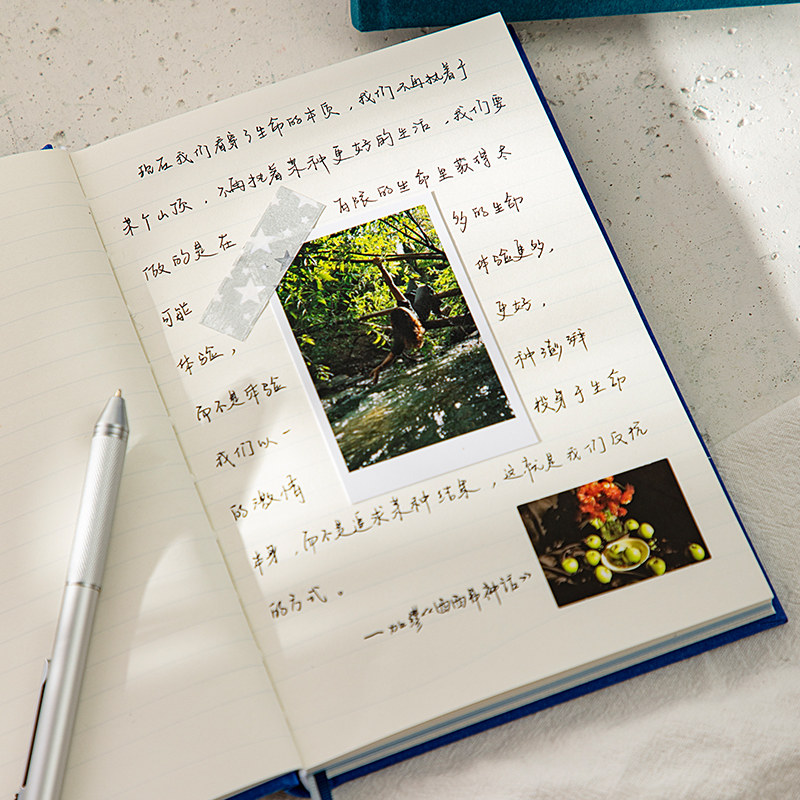 现在我们看穿了生命的本质，我们不再执着于
某个山顶，不再执着某种更好的生活，我们要
做的是在 有限的生命里获得尽
可能 多的生命
体验， 体验更多，
而不是体验 更好，
我们以一 种澎湃
的激情 投身于生命
本身，而不是追求某种结果，这就是我们反抗
的方式。
—加缪《西西弗神话》